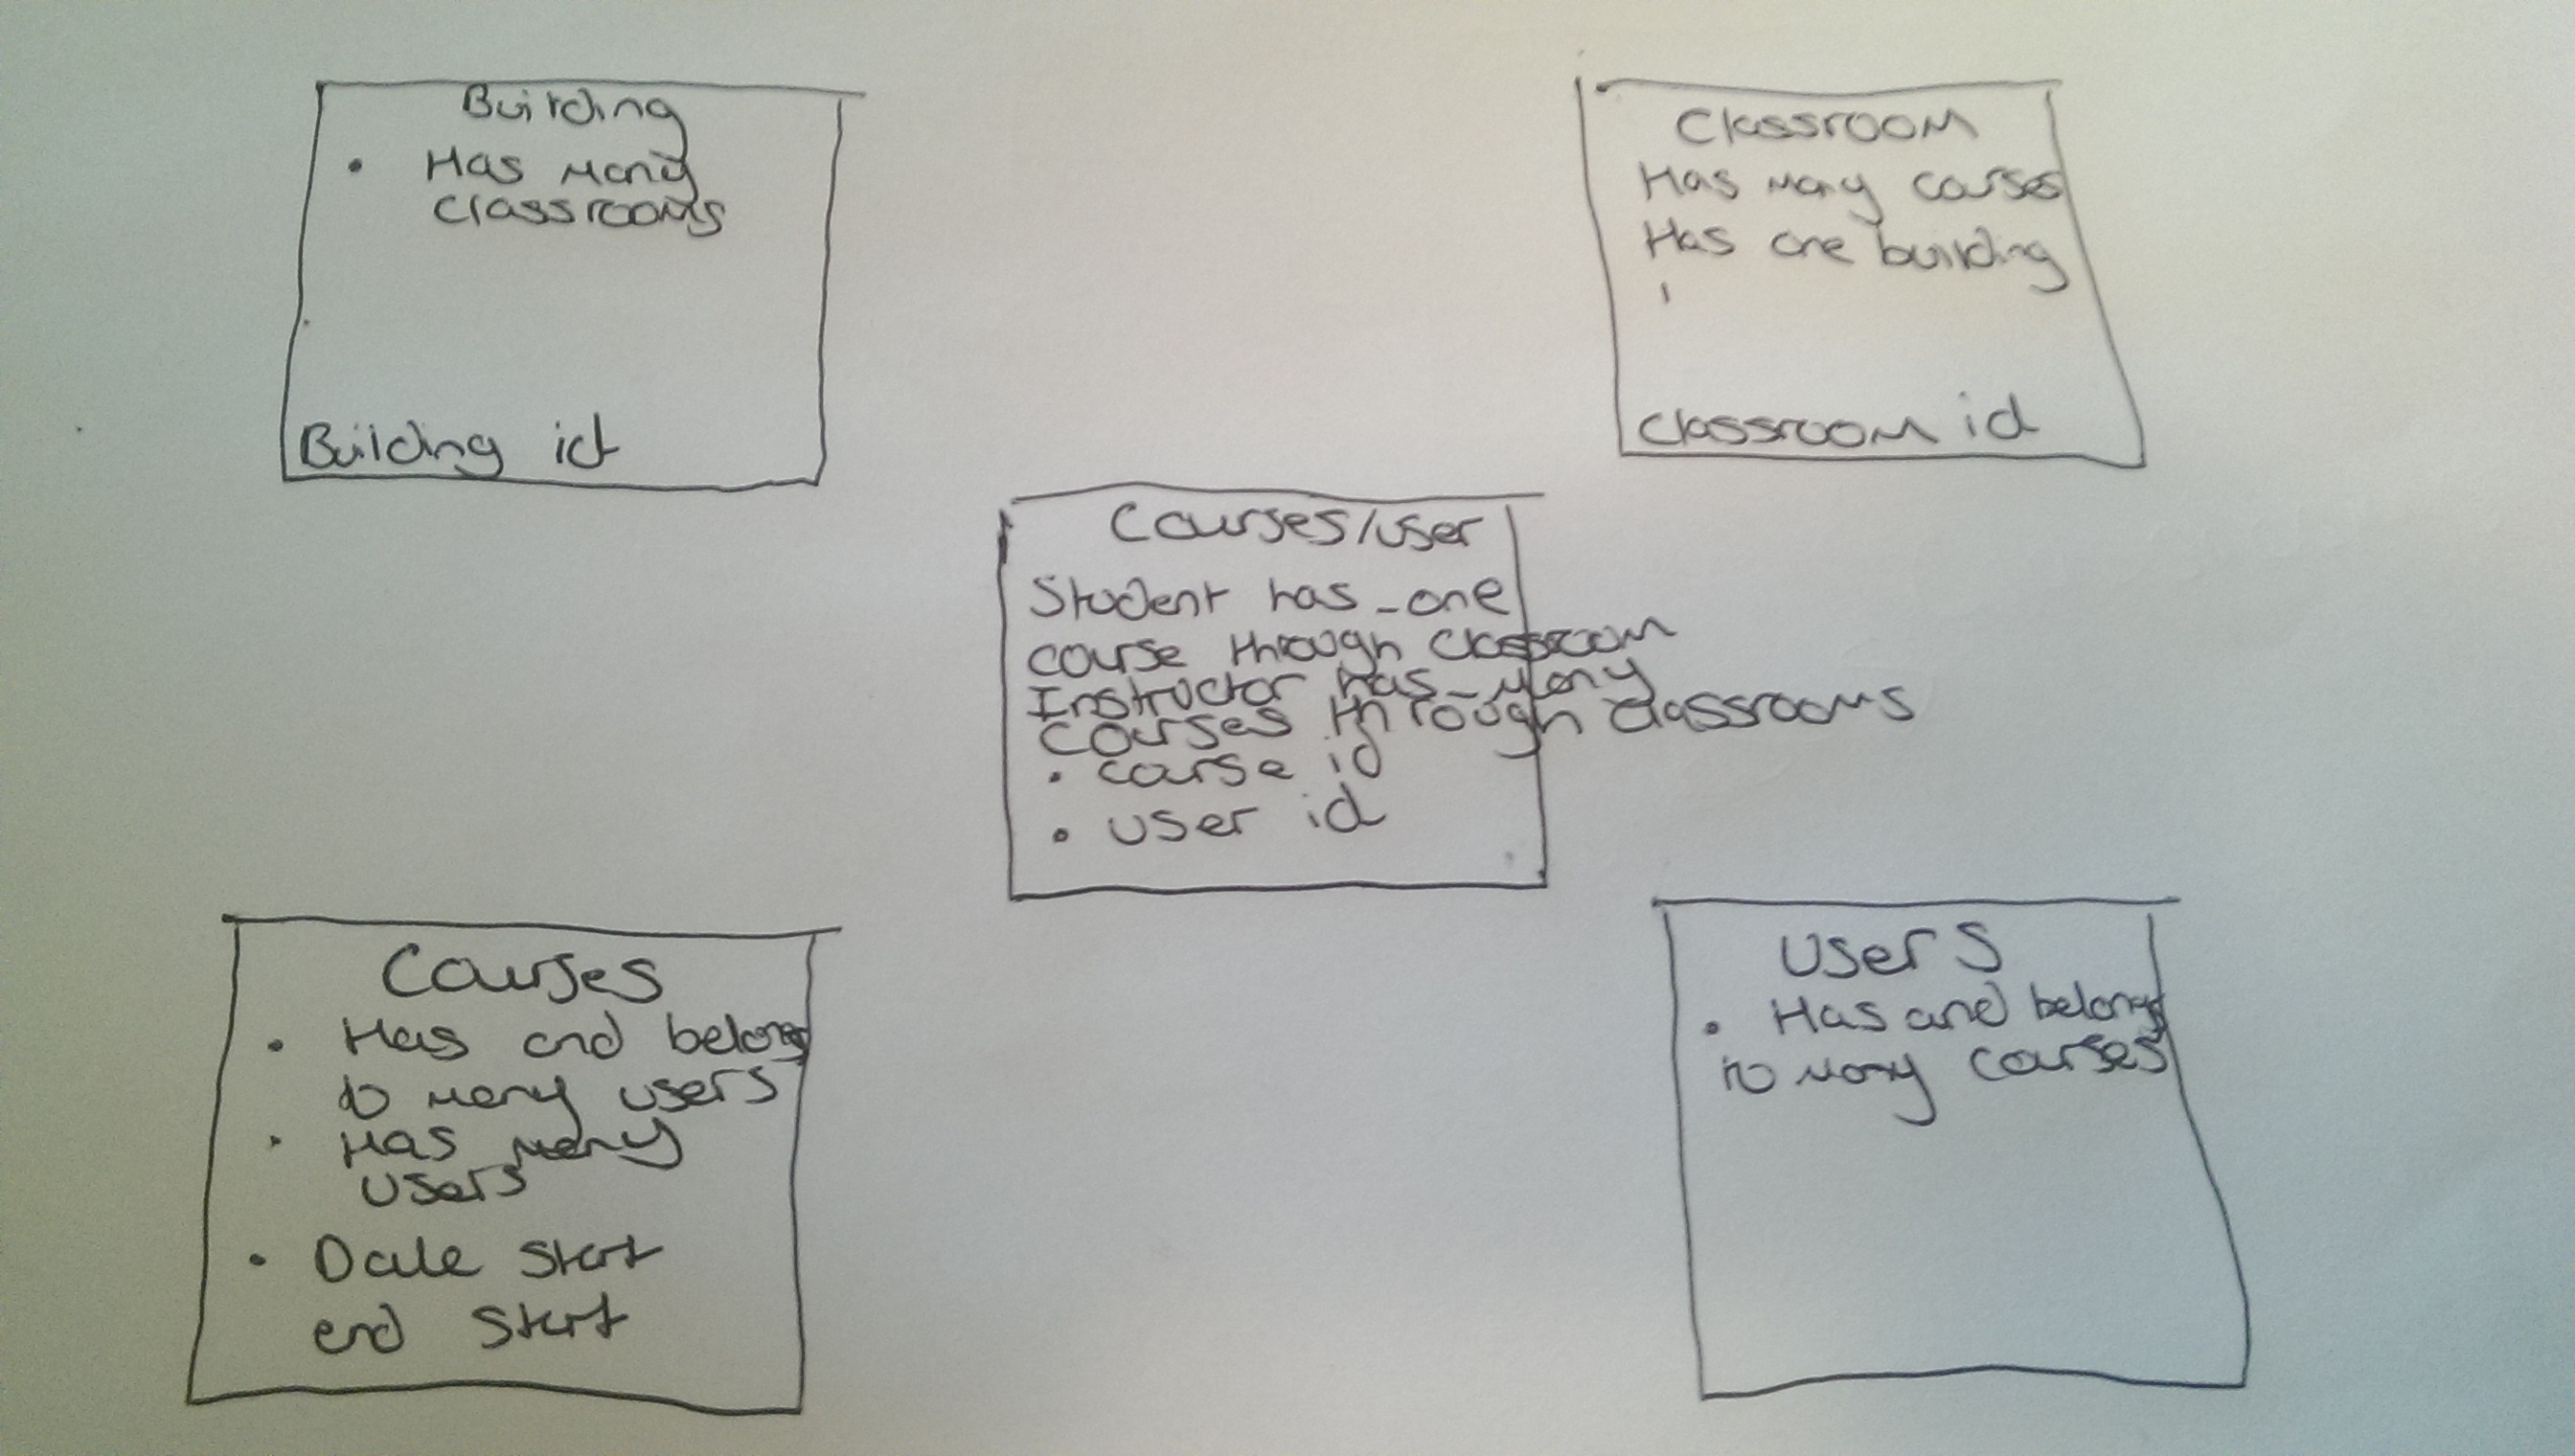 Building
• Has many
classrooms
Building id
Classroom
Has many courses
Has one building
Classroom id
Courses/user
Student has_one
course through classroom
Instructor has_many
courses through classrooms
• course id
• user id
Courses
• Has and belongs
to many users
• Has many
users
• Date start
end start
Users
• Has and belongs
to many courses